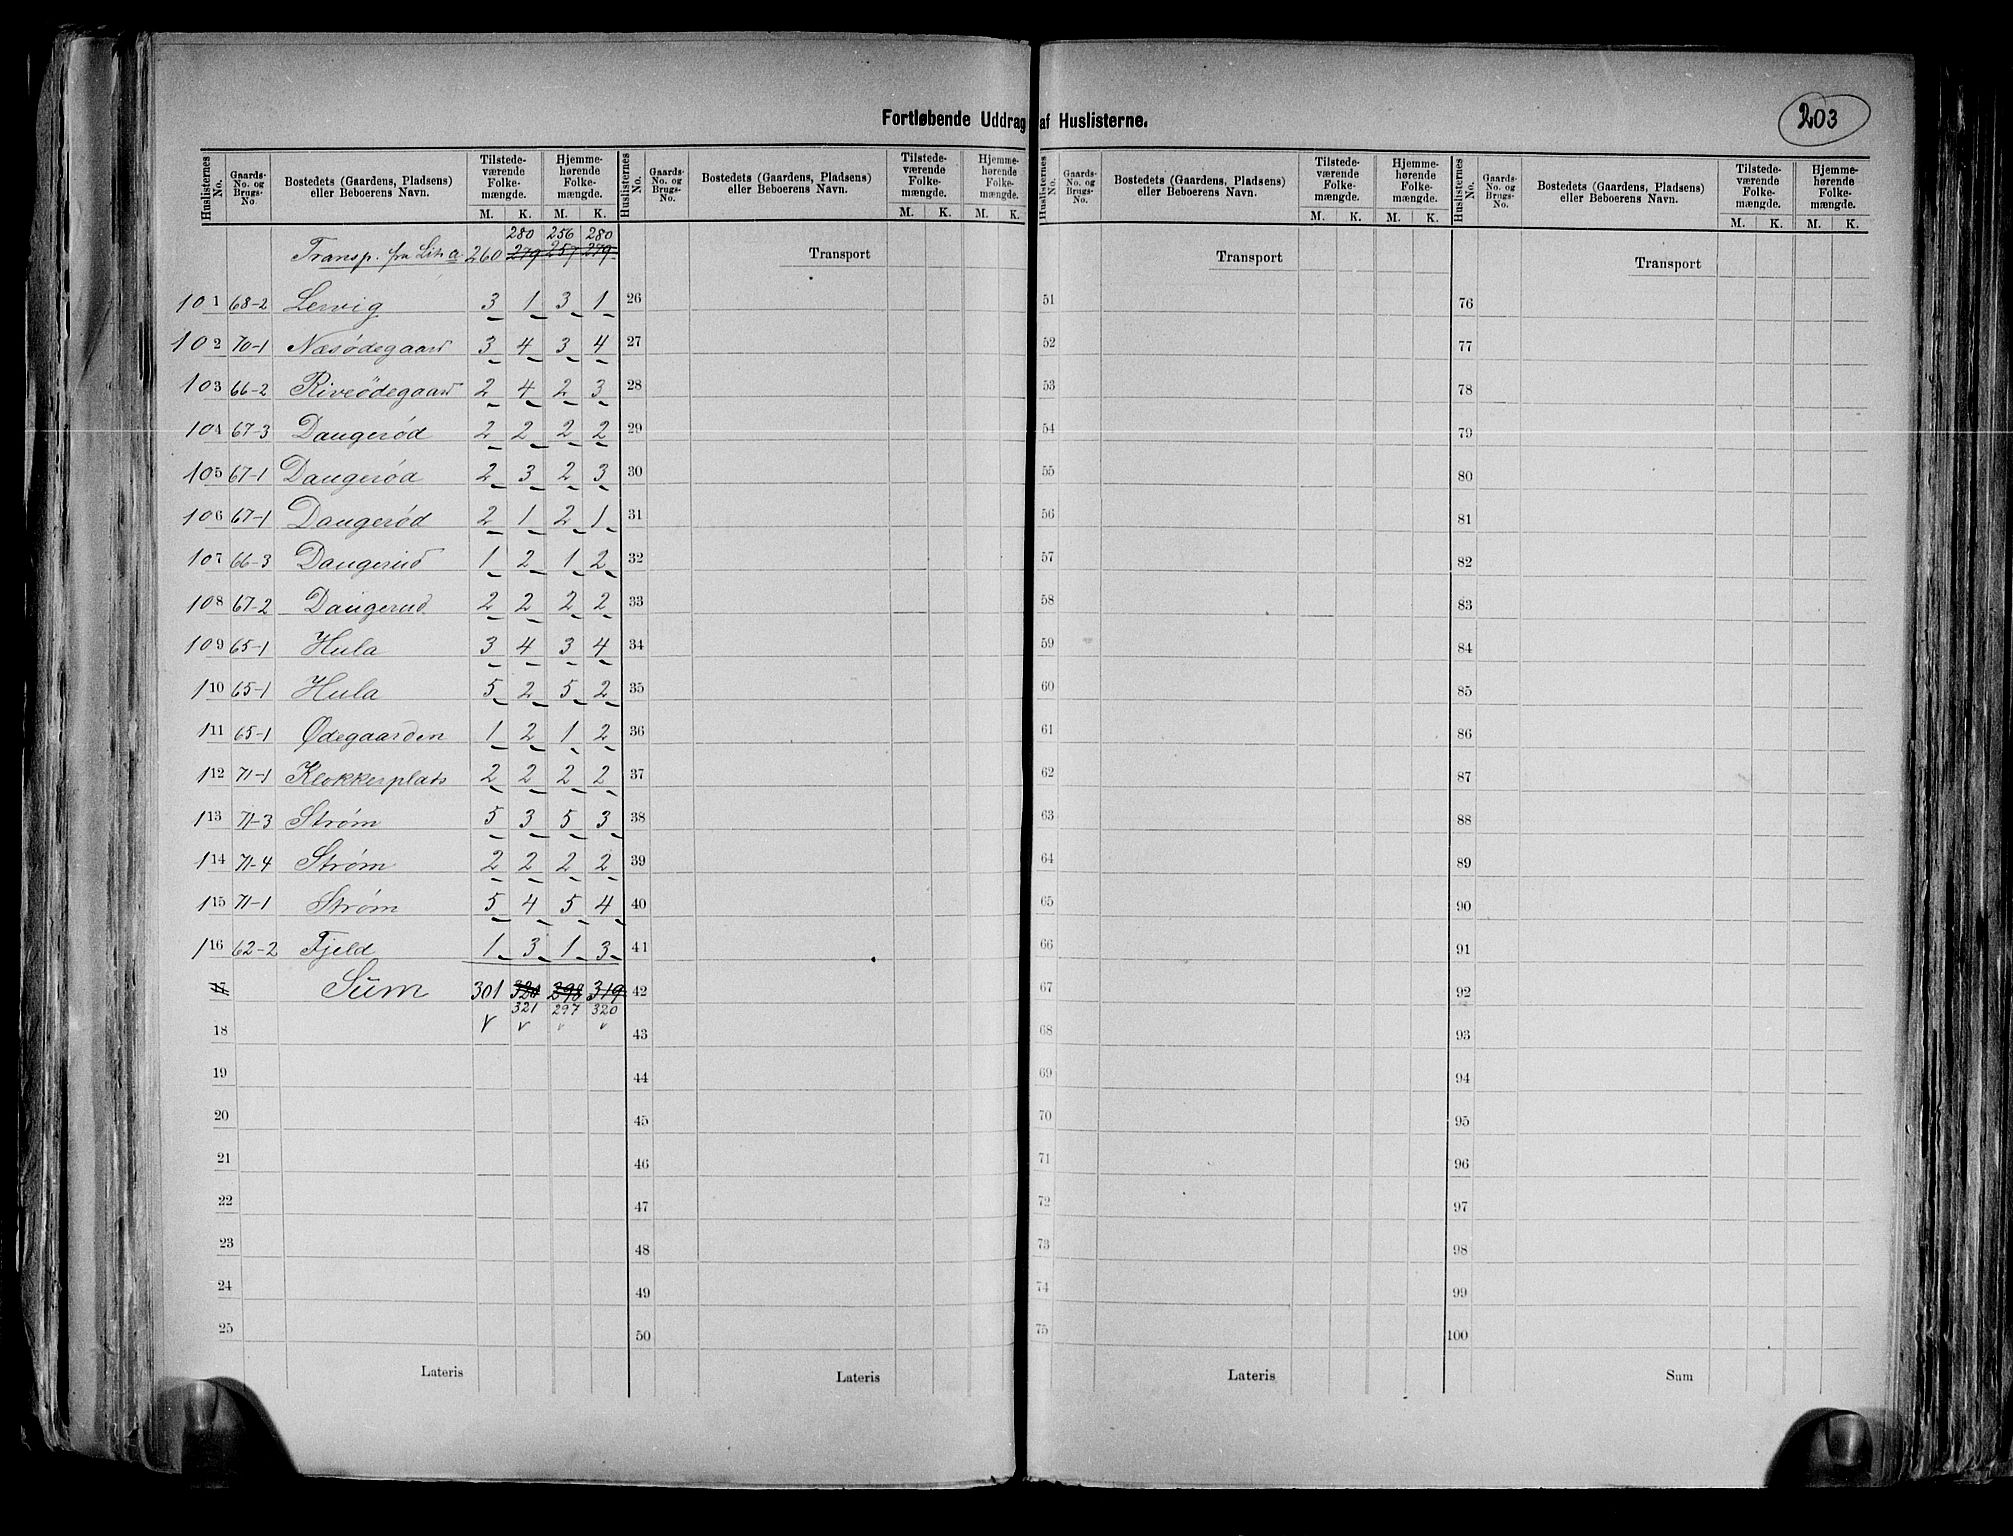 203
Fortløbende Uddrag af Huslisterne.
Huslisternes No. | Gaards-No. og Brugs-No. | Bostedets (Gaardens, Pladsens) eller Beboerens Navn. | Tilstedeværende Folkemængde. M. K. | Hjemmehørende Folkemængde. M. K.
Huslisternes No. | Gaards-No. og Brugs-No. | Bostedets (Gaardens, Pladsens) eller Beboerens Navn. | Tilstedeværende Folkemængde. M. K. | Hjemmehørende Folkemængde. M. K.
Huslisternes No. | Gaards-No. og Brugs-No. | Bostedets (Gaardens, Pladsens) eller Beboerens Navn. | Tilstedeværende Folkemængde. M. K. | Hjemmehørende Folkemængde. M. K.
Huslisternes No. | Gaards-No. og Brugs-No. | Bostedets (Gaardens, Pladsens) eller Beboerens Navn. | Tilstedeværende Folkemængde. M. K. | Hjemmehørende Folkemængde. M. K.
280 256 280
Transp. fra Lit. a 260 279 257 279
101 68-2 Lervig 3 1 3 1
102 70-1 Næsødegaard 3 4 3 4
103 66-2 Riveødegaard 2 4 2 3
104 67-3 Daugerød 2 2 2 2
105 67-1 Daugerød 2 3 2 3
106 67-1 Daugerød 2 1 2 1
107 66-3 Daugerud 1 2 1 2
108 67-2 Daugerud 2 2 2 2
109 65-1 Hula 3 4 3 4
110 65-1 Hula 5 2 5 2
111 65-1 Ødegaarden 1 2 1 2
112 71-1 Klokkerplads 2 2 2 2
113 71-3 Strøm 5 3 5 3
114 71-4 Strøm 2 2 2 2
115 71-1 Strøm 5 4 5 4
116 62-2 Fjeld 1 3 1 3
17 Sum 301 320 298 319
321 297 320
18
19
20
21
22
23
24
25
Lateris
Transport
26
27
28
29
30
31
32
33
34
35
36
37
38
39
40
41
42
43
44
45
46
47
48
49
50
Lateris
Transport
51
52
53
54
55
56
57
58
59
60
61
62
63
64
65
66
67
68
69
70
71
72
73
74
75
Lateris
Transport
76
77
78
79
80
81
82
83
84
85
86
87
88
89
90
91
92
93
94
95
96
97
98
99
100
Sum